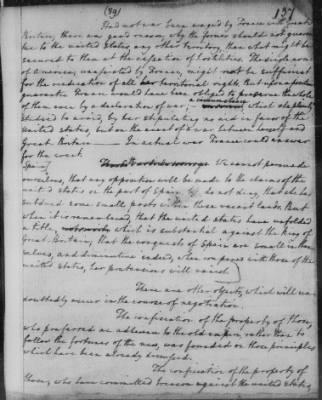 (89)
137
Had not war been waged by France with Great
Britain, there was good reason, why the former should not guaran-
tee to the united States any other territory, than what might be
secured to them at the cessation of hostilities. The single arm
of America, unassisted by France, might not be sufficient
for the vindication of all her territorial rights. But upon a [?]
guarantee France would have been obliged to preserve the whole
of them even by a declaration of war, a measure which she plainly
studied to avoid, by her stipulating no aid in favor of the
united States, but on the event of a war between herself and
Great Britain. In actual war France could answer
for the event.
We cannot persuade
ourselves, that any opposition will be made to the claims of the
united States on the part of Spain. We do not deny, that she has
subdued some small posts within these vacant lands. But
when it is remembered, that the united States have unfolded
a title, which is substantial against the King of
Great Britain, that the conquests of Spain are small in them-
selves, and diminutive indeed, when compared with those of the
united States, her pretensions will vanish.
There are other objects, which will un-
doubtedly occur in the course of negotiation.
The confiscation of the property of those,
who preferred an adherence to the old empire, rather than to
follow the fortunes of the new, was founded on those principles
which have been already discussed.
The confiscation of the property of
those, who have committed treason against the united States,